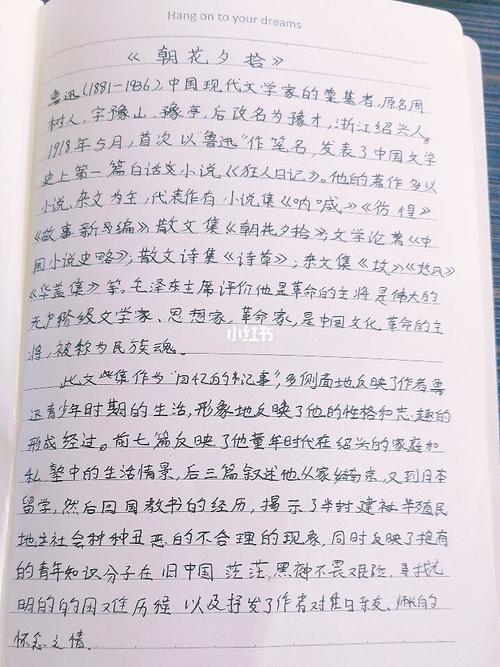 Hang on to your dreams
《朝花夕拾》
鲁迅(1881-1936),中国现代文学家的奠基者,原名周
树人,字豫山,豫亭,后改名为豫才,浙江绍兴人。
1918年5月,首次以"鲁迅"作笔名,发表了中国文学
史上第一篇白话类小说《狂人日记》。他的著作多以
小说、杂文为主,代表作有小说集《呐喊》《彷徨》
《故事新编》,散文集《朝花夕拾》;文学论著《中
国小说史略》;散文诗集《诗草》;杂文集《坟》《热风》
《华盖集》等。毛泽东主席评价他是革命的主将是伟大的
无产阶级文学家、思想家,革命家,是中国文化革命的主
将,被称为民族魂。
小红书
此文集作为"回忆的记事",多侧面地反映了作者鲁
迅青少年时期的生活,形象地反映了他的性格和志趣的
形成经过。前七篇反映了他童年时代在绍兴的家庭和
私塾中的生活情景,后三篇叙述他从家乡南京,又到日本
留学,然后回国教书的经历,揭示了半封建社半殖民
地主社会种种丑恶的不合理的现象,同时反映了抱有
的青年知识分子在旧中国茫茫,黑神不畏艰险,寻找光
明的的困难历程以及抒发了作者对昔日亲友、师长的
怀念之情.